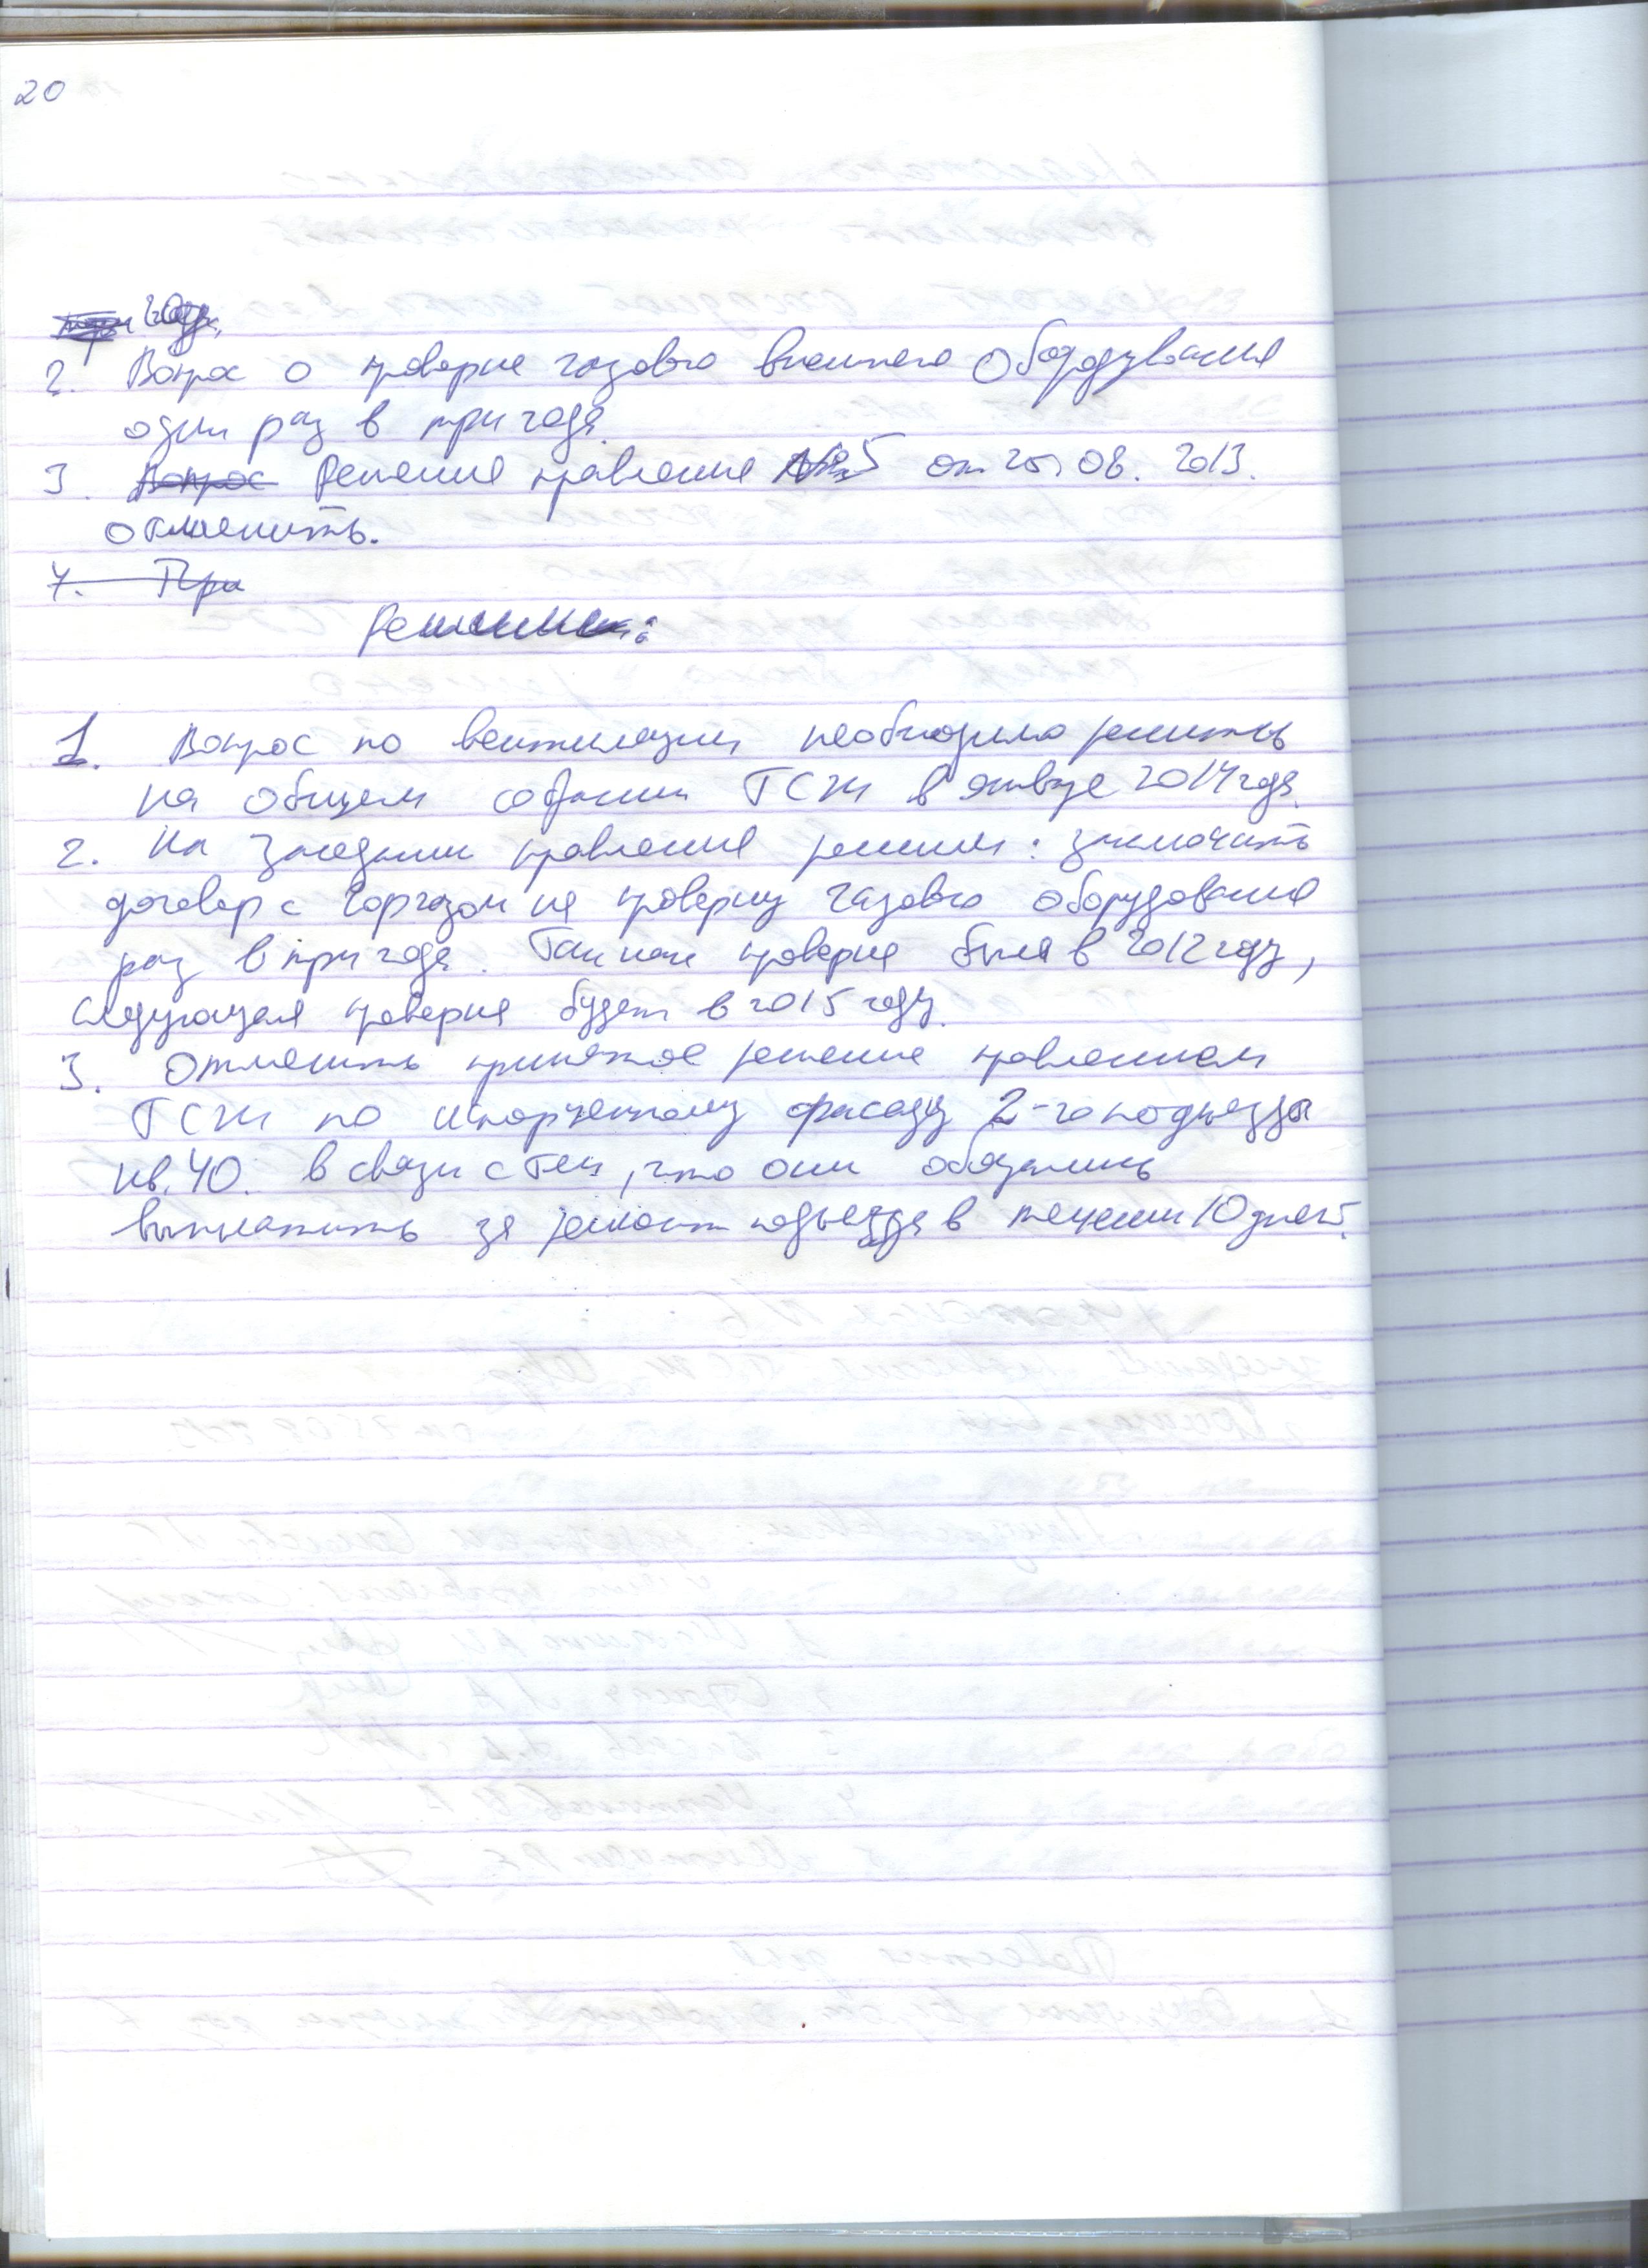 20
году.
2. Вопрос о проверке газового внешнего оборудования
один раз в три года.
3. Вопрос Решение правления №5 от 25.08. 2013.
отменить.
4. При
Решили:
1. Вопрос по вентиляции необходимо решить
на общем собрании ТСЖ в январе 2014 года.
2. На заседании правления решили: заключить
договор с Горгазом на проверку газового оборудования
раз в три года. Так как проверка была в 2012 году,
следующая проверка будет в 2015 году.
3. Отменить принятое решение правлением
ТСЖ по испорченному фасаду 2-го подъезда
кв. 40. в связи с тем, что они обязались
выплатить за ремонт подъезда в течении 10 дней.